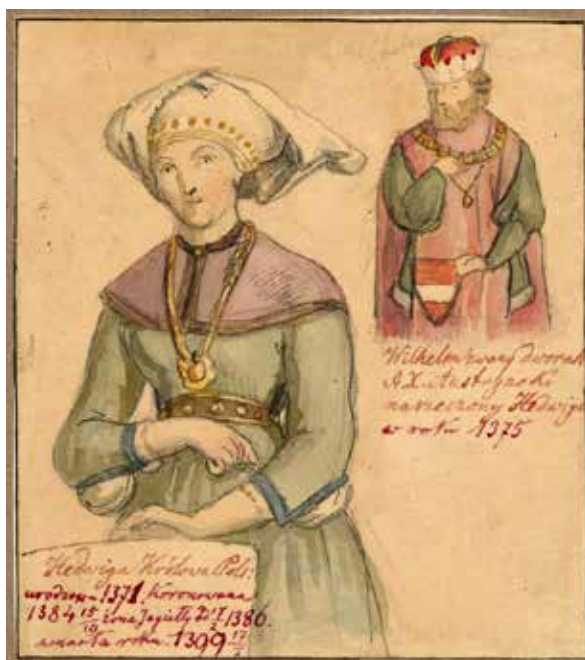 Wilhelm zwany dworak
A.X. Austryacki
narzeczony Hedwigi
w roku 1375
Hedwiga Królowa Pols:
urodzona 1371. Koronowana
1384 15/10 żona Jagiełły D. 17/2 1386.
zmarła roku. 1399 17/